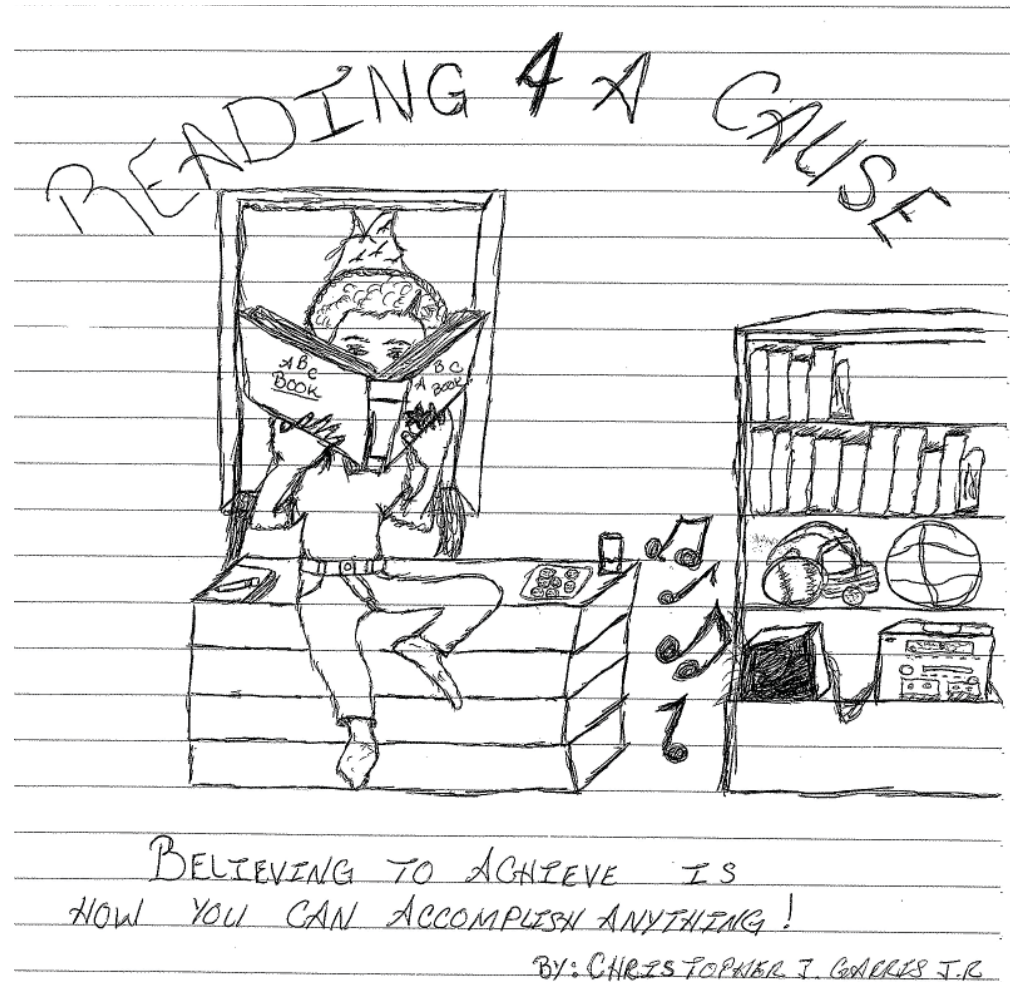 READING 4 A CAUSE
ABC
BOOK
A B C
BOOK
BELIEVING TO ACHIEVE IS
HOW YOU CAN ACCOMPLISH ANYTHING!
BY: CHRISTOPHER J. GARRIS J.R